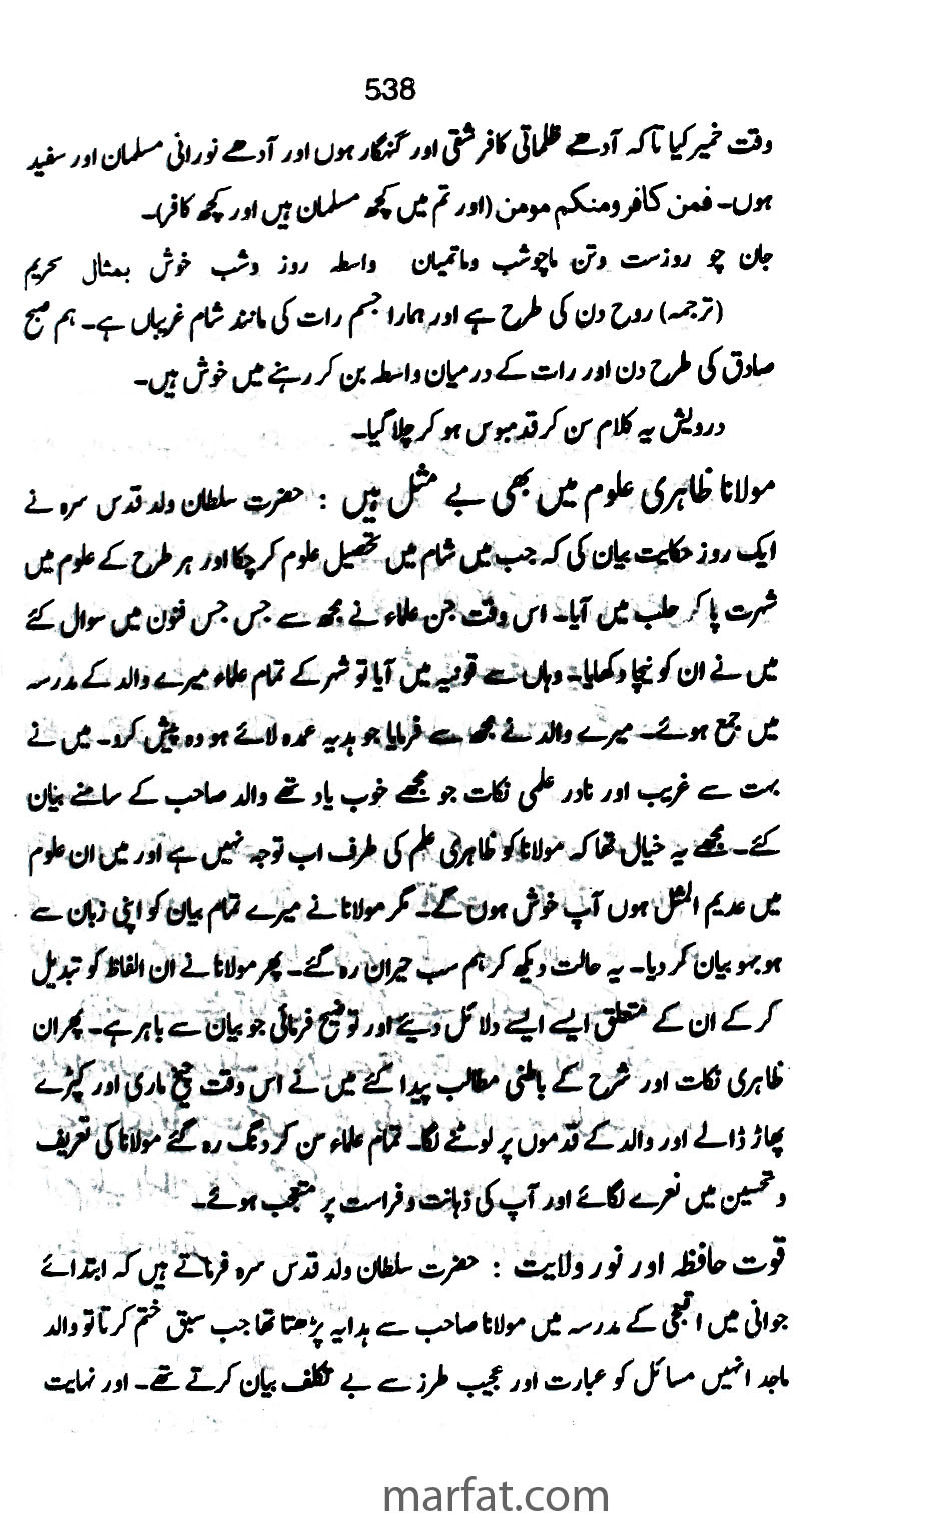 538
وقت خمیر کیا تاکہ آدھے ظلماتی کافر شقی اور گنہگار ہوں اور آدھے نورانی مسلمان اور سفید
ہوں۔ فمن کافر ومنکم مومن (اور تم میں کچھ مسلمان ہیں اور کچھ کافر)۔
جان چو روزست وتن ماچوشب وماتمیان واسطہ روز وشب خوش بمثال سحریم
(ترجمہ) روح دن کی طرح ہے اور ہمارا جسم رات کی مانند شام غریباں ہے۔ ہم صبح
صادق کی طرح دن اور رات کے درمیان واسطہ بن کر رہنے میں خوش ہیں۔
درویش یہ کلام سن کر قدمبوس ہو کر چلا گیا۔
مولانا ظاہری علوم میں بھی بے مثل ہیں : حضرت سلطان ولد قدس سرہ نے
ایک روز حکایت بیان کی کہ جب میں شام میں تحصیل علوم کرچکا اور ہر طرح کے علوم میں
شہرت پا کر حلب میں آیا۔ اس وقت جن علماء نے مجھ سے جس جس فنون میں سوال کئے
میں نے ان کو نیچا دکھلایا۔ وہاں سے قونیہ میں آیا تو شہر کے تمام علماء میرے والد کے مدرسہ
میں جمع ہوئے۔ میرے والد نے مجھ سے فرمایا جو ہدیہ عمدہ لائے ہو وہ پیش کرو۔ میں نے
بہت سے غریب اور نادر علمی نکات جو مجھے خوب یاد تھے والد صاحب کے سامنے بیان
کئے۔ مجھے یہ خیال تھا کہ مولانا کو ظاہری علم کی طرف اب توجہ نہیں ہے اور میں ان علوم
میں عدیم المثل ہوں آپ خوش ہوں گے۔ مگر مولانا نے میرے تمام بیان کو اپنی زبان سے
ہو بہو بیان کر دیا۔ یہ حالت دیکھ کر ہم سب حیران رہ گئے۔ پھر مولانا نے ان الفاظ کو تبدیل
کر کے ان کے متعلق ایسے ایسے دلائل دیئے اور توضیح فرمائی جو بیان سے باہر ہے۔ پھر ان
ظاہری نکات اور شرح کے باطنی مطالب پیدا کئے میں نے اس وقت چیخ ماری اور کپڑے
پھاڑ ڈالے اور والد کے قدموں پر لوٹنے لگا۔ تمام علماء سن کر دنگ رہ گئے مولانا کی تعریف
و تحسین میں نعرے لگائے اور آپ کی ذہانت و فراست پر متعجب ہوئے۔
قوت حافظہ اور نور ولایت : حضرت سلطان ولد قدس سرہ فرماتے ہیں کہ ابتدائے
جوانی میں اقبجی کے مدرسہ میں مولانا صاحب سے ہدایہ پڑھتا تھا جب سبق ختم کرتا تو والد
ماجد انہیں مسائل کو عبارت اور عجیب طرز سے بے تکلف بیان کرتے تھے۔ اور نہایت
marfat.com